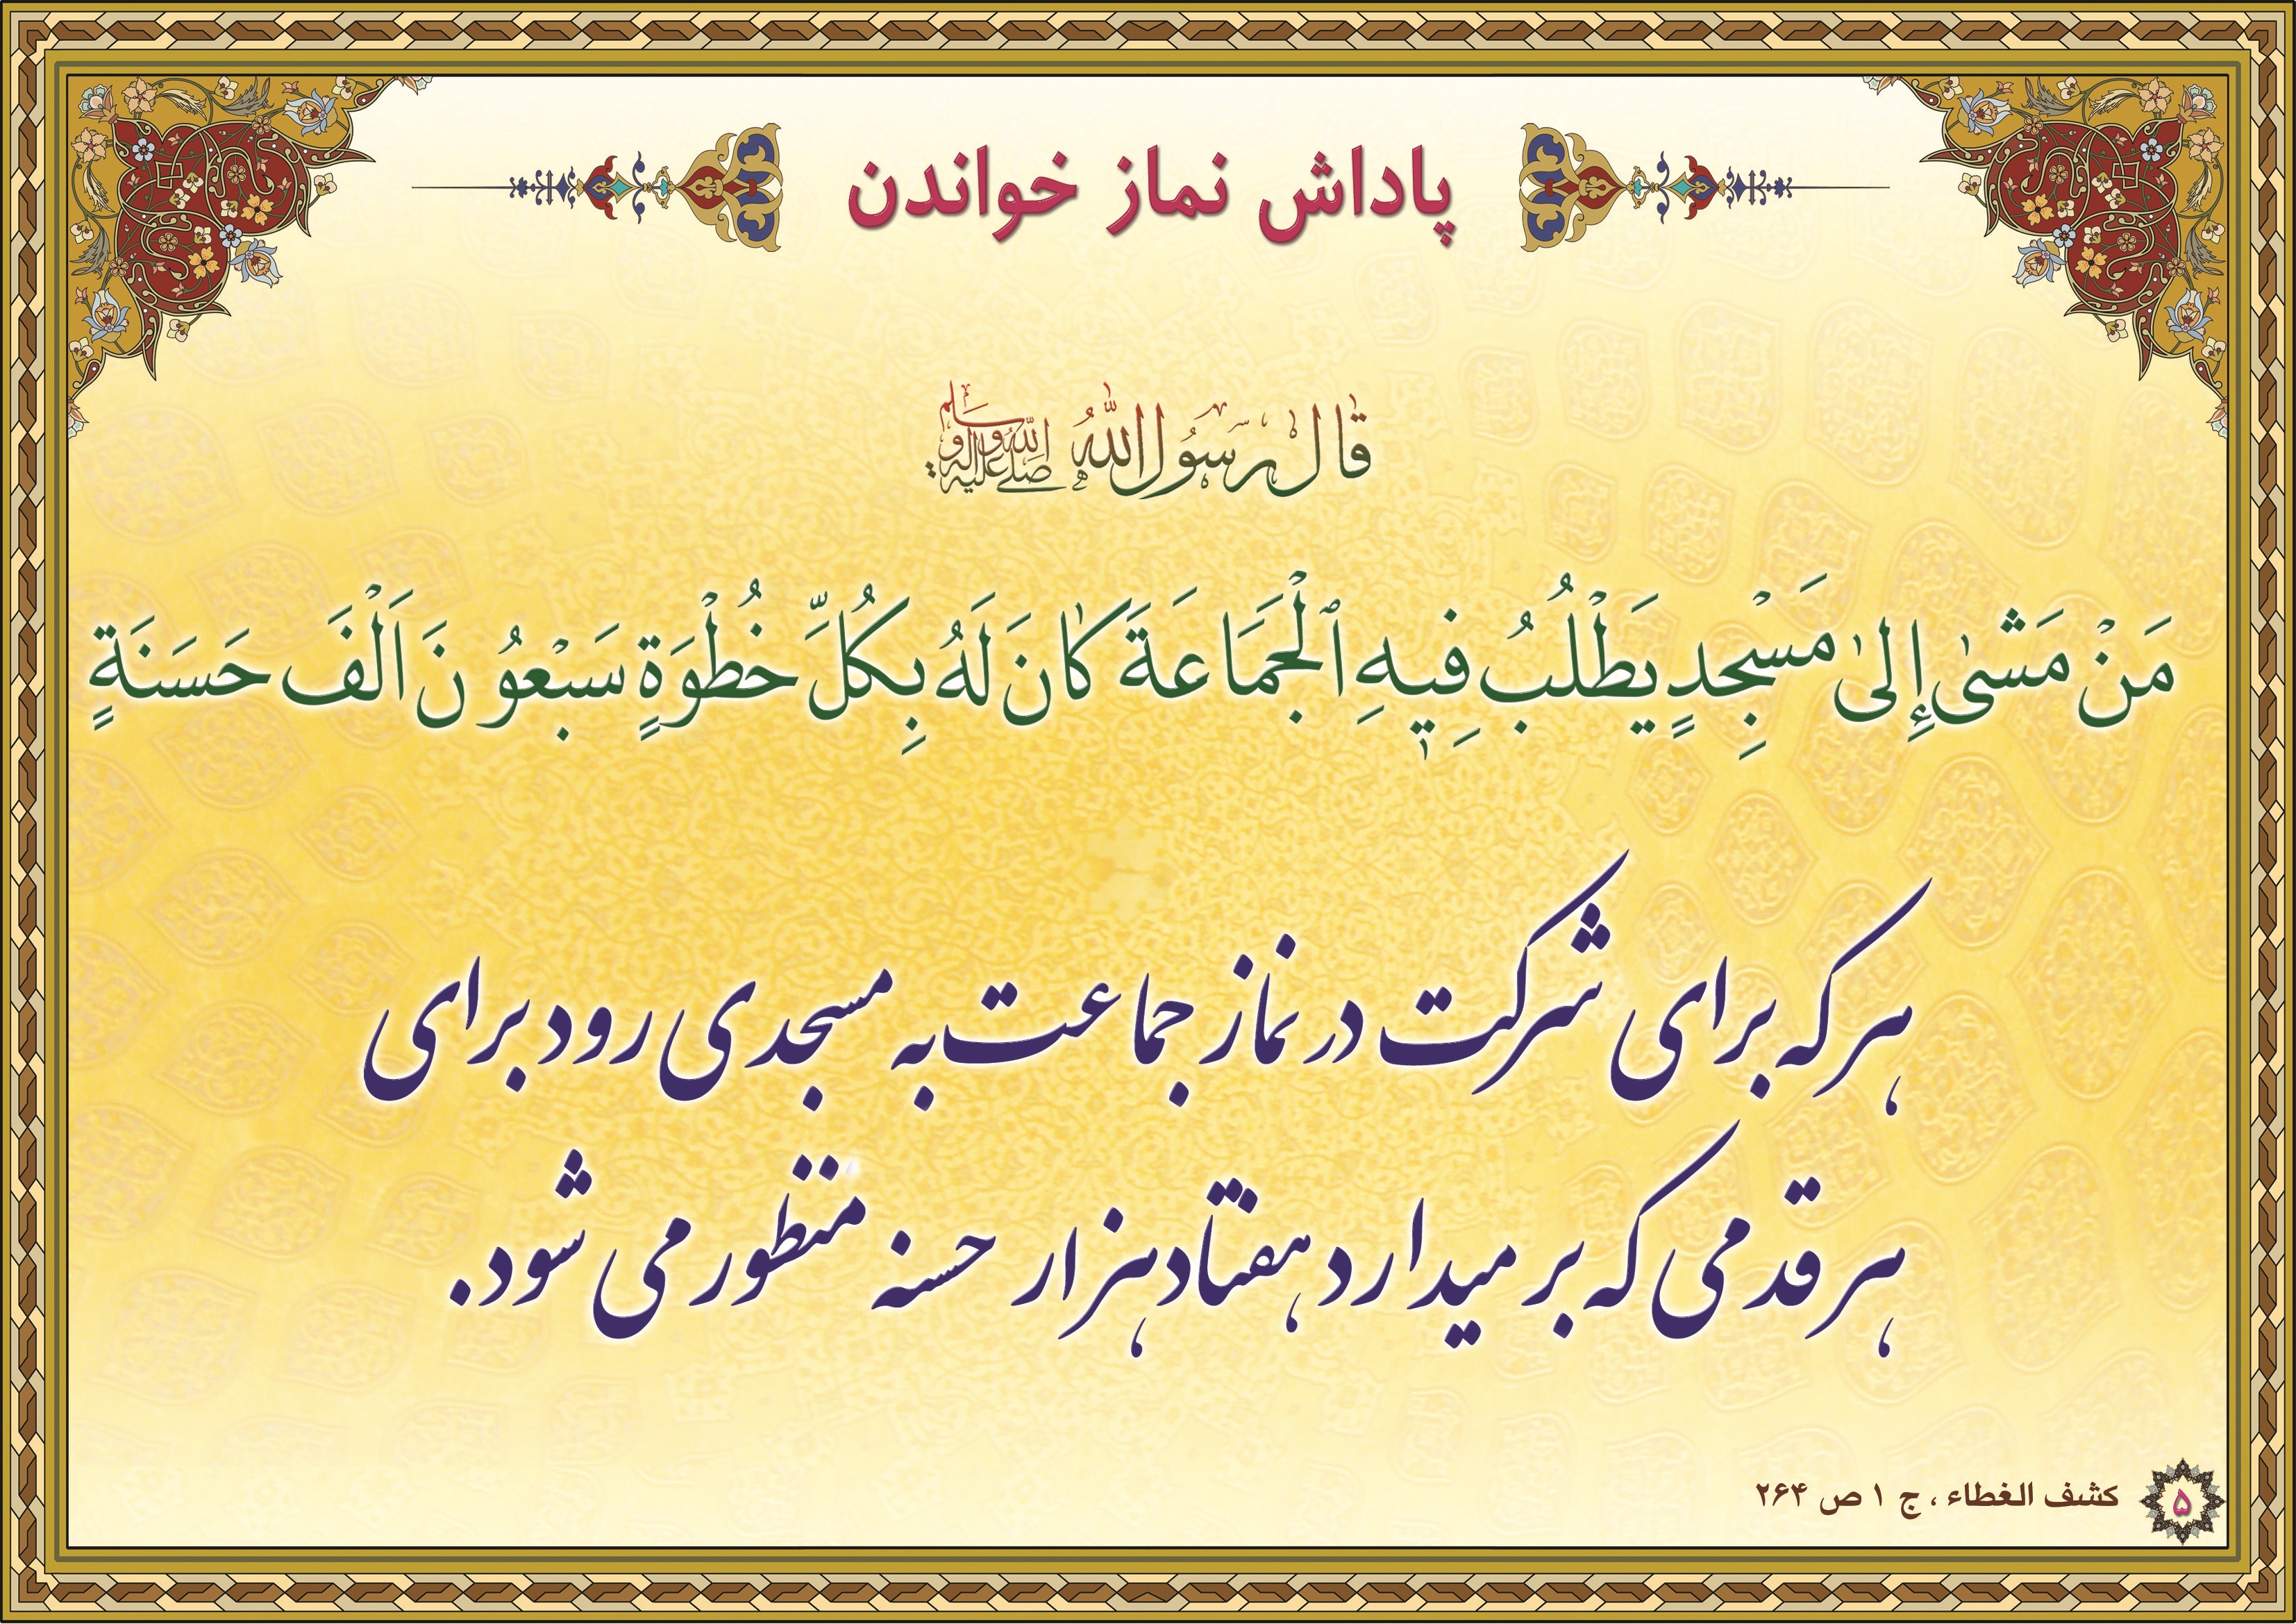 پاداش نماز خواندن
قال رسول الله صلی الله علیه وآله وسلم
مَنْ مَشىٰ إِلىٰ مَسْجِدٍ يَطْلُبُ فِيهِ ٱلْجَمَاعَةَ كانَ لَهُ بِكُلِّ خُطْوَةٍ سَبْعُونَ اَلْفَ حَسَنَةٍ
هر که برای شرکت در نماز جماعت به مسجدی رود برای
هر قدمی که بر میدارد هفتاد هزار حسنه منظور می شود.
۵ کشف الغطاء ، ج ۱ ص ۲۶۴